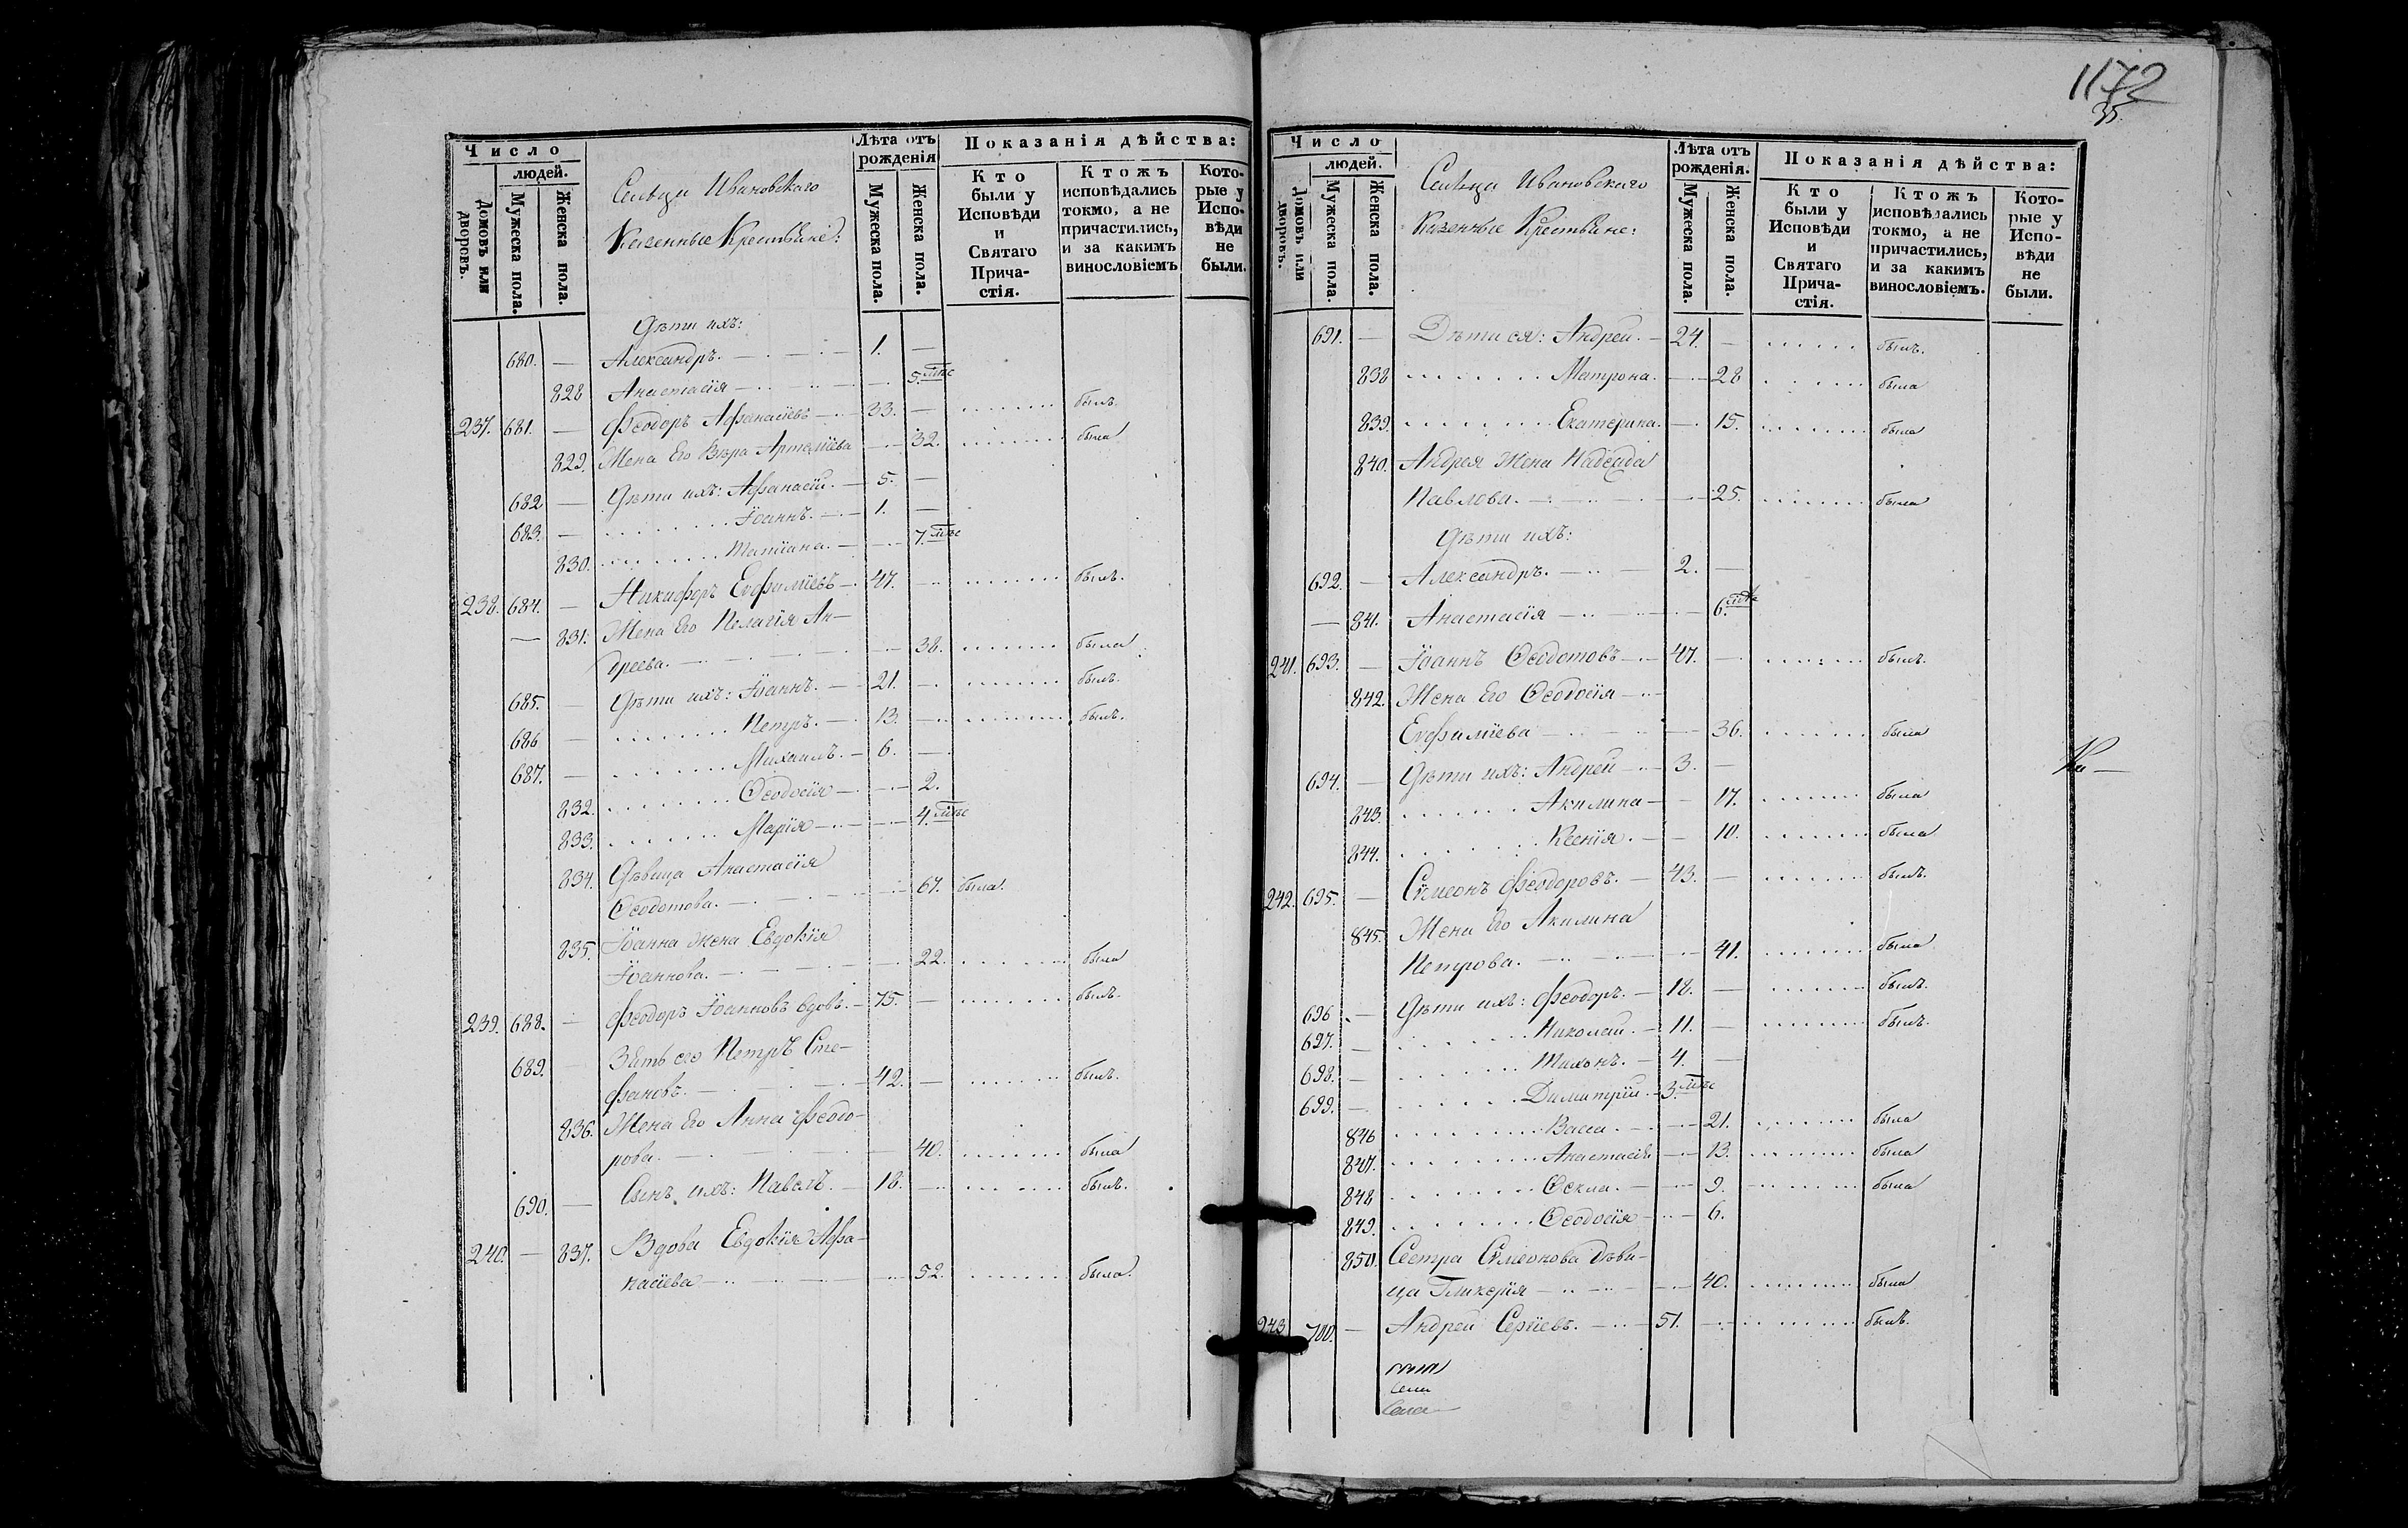 1172
35
Число
людей.
Домовъ или дворовъ.
Мужеска пола.
Женска пола.
Сельца Ивановскаго
Казенные Крестьяне:
Лѣта отъ рожденія
Мужеска пола.
Женска пола.
Показанія дѣйства:
Кто были у Исповѣди и Святаго Прича-стія.
Ктожъ исповѣдались токмо, а не причастились, и за какимъ винословіемъ
Кото-рые у Испо-вѣди не были.
Дѣти ихъ:
680. — Александръ. — 1. —
828 Анастасія — 5. мѣс
237. 681. — Феодоръ Афанасіевъ — 33. — былъ.
829. Жена Его Вѣра Артеміева — 32. была
682 — Дѣти ихъ: Афанасій. — 5. —
683. — Іоаннъ. — 1. —
830. Татіана. — 7. мѣс
238. 684. — Никифоръ Евфиміевъ — 47. — былъ.
— 831. Жена Его Пелагія Ан-
дреева. — 38. была
685. — Дѣти ихъ: Іоаннъ. — 21. — былъ.
686 — Петръ. — 13. — былъ.
687. — Михаилъ. — 6. —
832. Ѳеодосія — 2.
833. Марія — 4. мѣс
834. Дѣвица Анастасія
Ѳеодотова. — 67. была.
835. Іоанна жена Евдокія
Іоаннова. — 22. была
239. 688. — Феодоръ Іоанновъ вдовъ. — 75. — былъ.
689. — Зять его Петръ Сте-
фановъ. — 42. — былъ.
836. Жена Его Анна Феодо-
рова. — 40. была
690. — Сынъ ихъ: Павелъ. — 18. — былъ.
240. — 837. Вдова Евдокія Афа-
насіева — 52. была.
Число
людей.
Домовъ или дворовъ.
Мужеска пола.
Женска пола.
Сельца Ивановскаго
Казенные Крестьяне:
Лѣта отъ рожденія.
Мужеска пола.
Женска пола.
Показанія дѣйства:
Кто были у Исповѣди и Святаго Прича-стія.
Ктожъ исповѣдались токмо, а не причастились, и за какимъ винословіемъ.
Кото-рые у Испо-вѣди не были.
691. — Дѣти ея: Андрей. — 24. — былъ.
838 Матрона. — 28 была
839. Екатерина. — 15. была
840. Андрея Жена Надежда
Павлова. — 25. была
Дѣти ихъ:
692. — Александръ. — 2. —
— 841. Анастасія — 6. мѣс
241. 693. — Іоаннъ Ѳеодотовъ — 47. — былъ.
842. Жена Его Ѳеодосія —
Евфиміева — 36. была
694. — Дѣти ихъ: Андрей — 3. —
843. Акилина — 17. была
844. Ксенія. — 10. была
242. 695. — Сѵмеонъ Феодоровъ. — 43. — былъ.
845. Жена Его Акилина
Петрова. — 41. была
696 — Дѣти ихъ: Феодоръ. — 18. — былъ.
697. — Николай. — 11. — былъ.
698. — Тихонъ. — 4. —
699. — Димитрій. — 3. мѣс
846 Васса. — 21. была
847. Анастасія — 13. была
848 Ѳекла. — 9. была
849. Ѳеодосія — 6.
850. Сестра Сѵмеонова дѣви-
ца Гликерія — 40. была
243 700. — Андрей Сергіевъ. — 51. — былъ.
Села